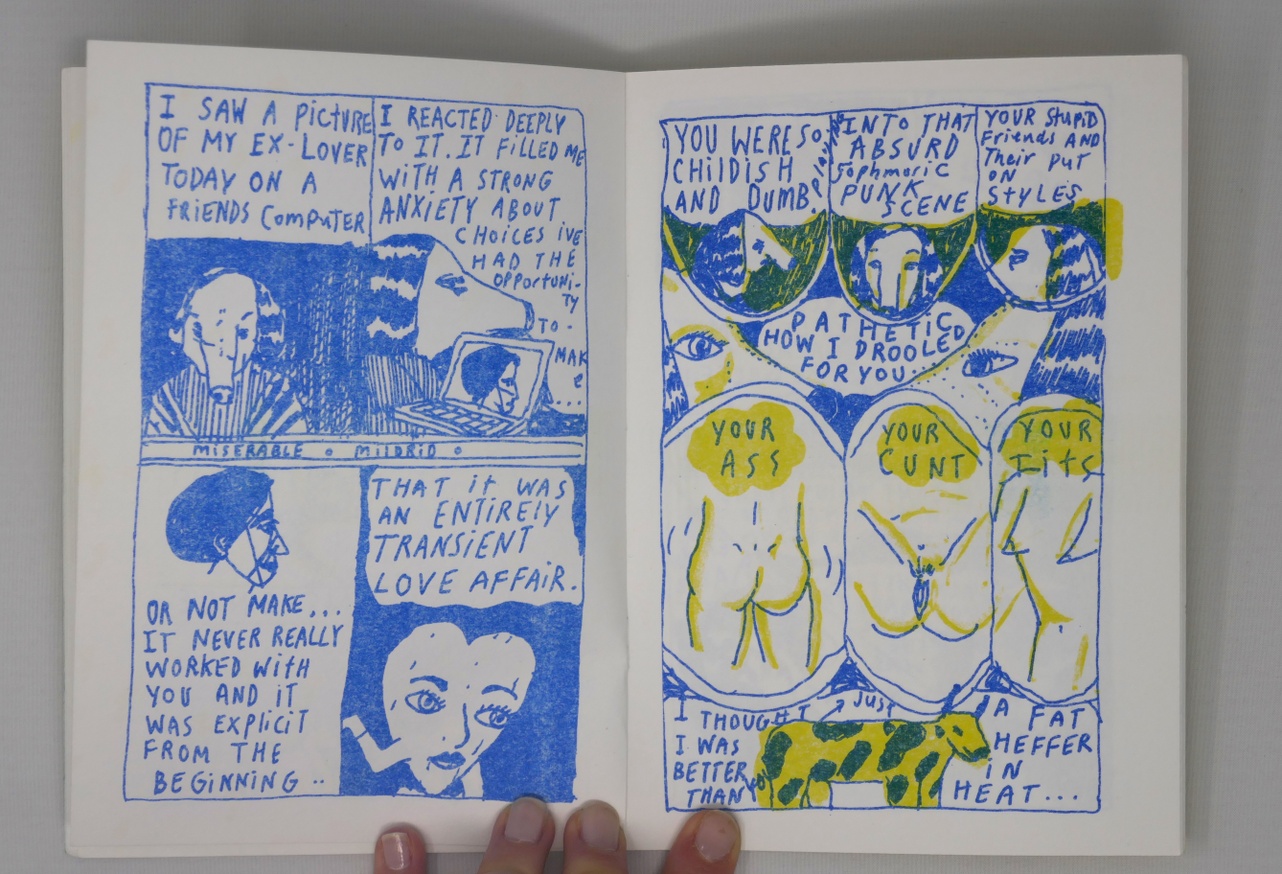 I SAW A PicTURE
OF MY EX-LOVER
TODAY ON A
FRiENDS Computer
I REACTED DEEPLY
TO IT. IT FiLLED ME
WiTH A STRONG
ANXIETY ABOUT
CHOICES iVE
HAD THE
OPPORTUNi-
TY
TO -
MAK
e
...
MISERABLE • MILDRID •
OR NOT MAKE...
IT NEVER REALLY
WORKED WiTH
YOU AND iT
WAS EXPLiCIT
FROM THE
BEGINNING ..
THAT iT WAS
AN ENTIRElY
TRANSIENT
LOVE AFFAIR.
YOU WERE SO
CHiLDISH
AND DUMB.
INTO THAT
ABSURD
Sophmoric
PUNK
SCENE
YOUR StuPiD
Friends AND
Their PUT
ON
STYLES
PATHETIC
HOW I DROOLED
FOR YOU..
YOUR
ASS
YOUR
CUNT
YOUR
TiTS
I THOUGHT
I WAS
BETTER
THAN YOU
JUST
A FAT
HEFFER
iN
HEAT...